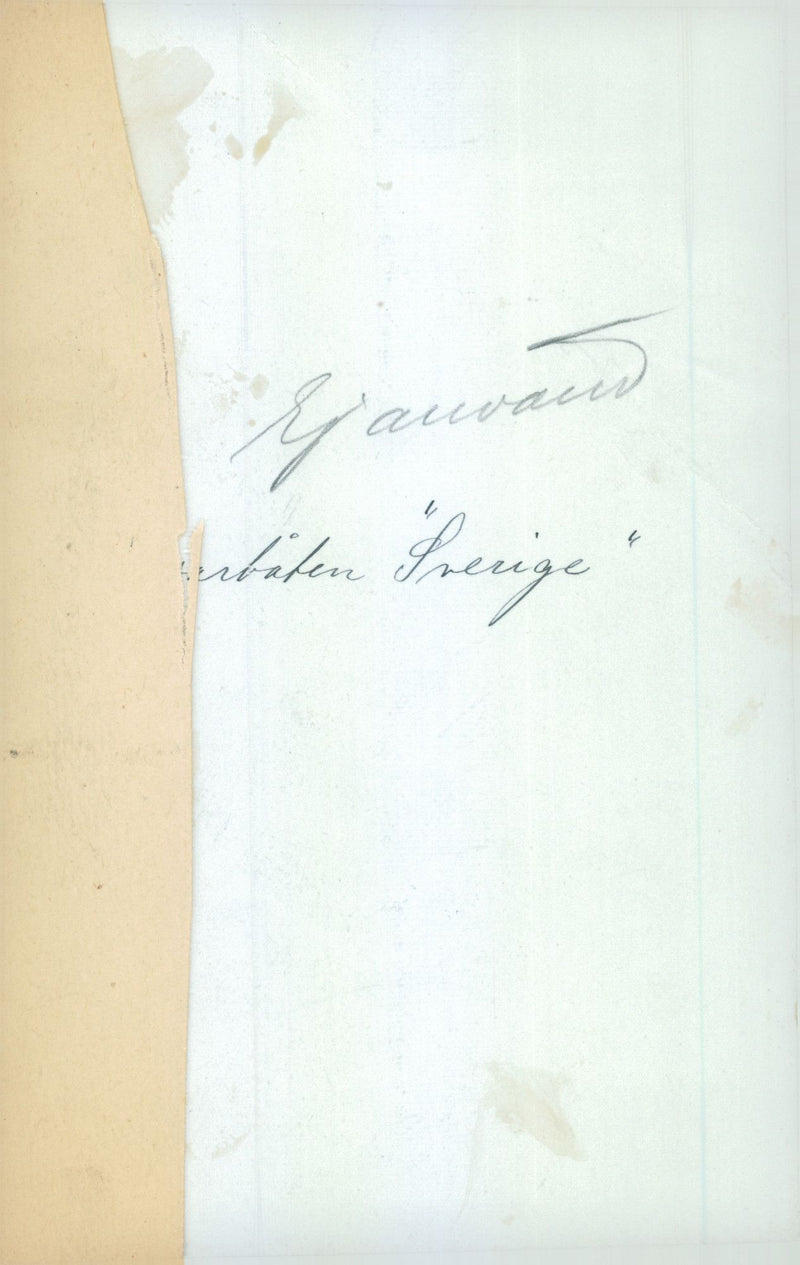 Ej använd
arbåten "Sverige"